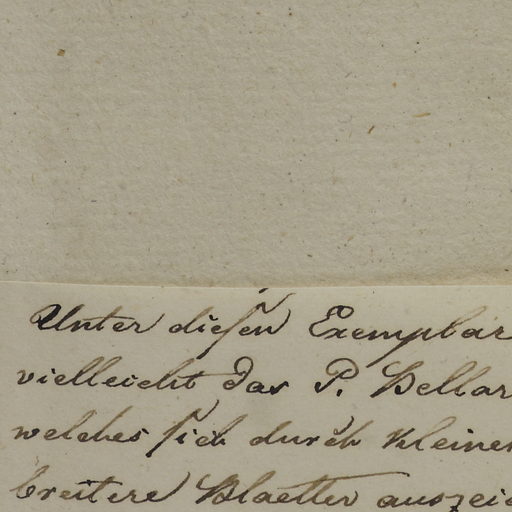 Unter dieſen Exemplar
vielleicht das P. Bellar
welches ſich durch kleiner
breitere Blaetter auszeic